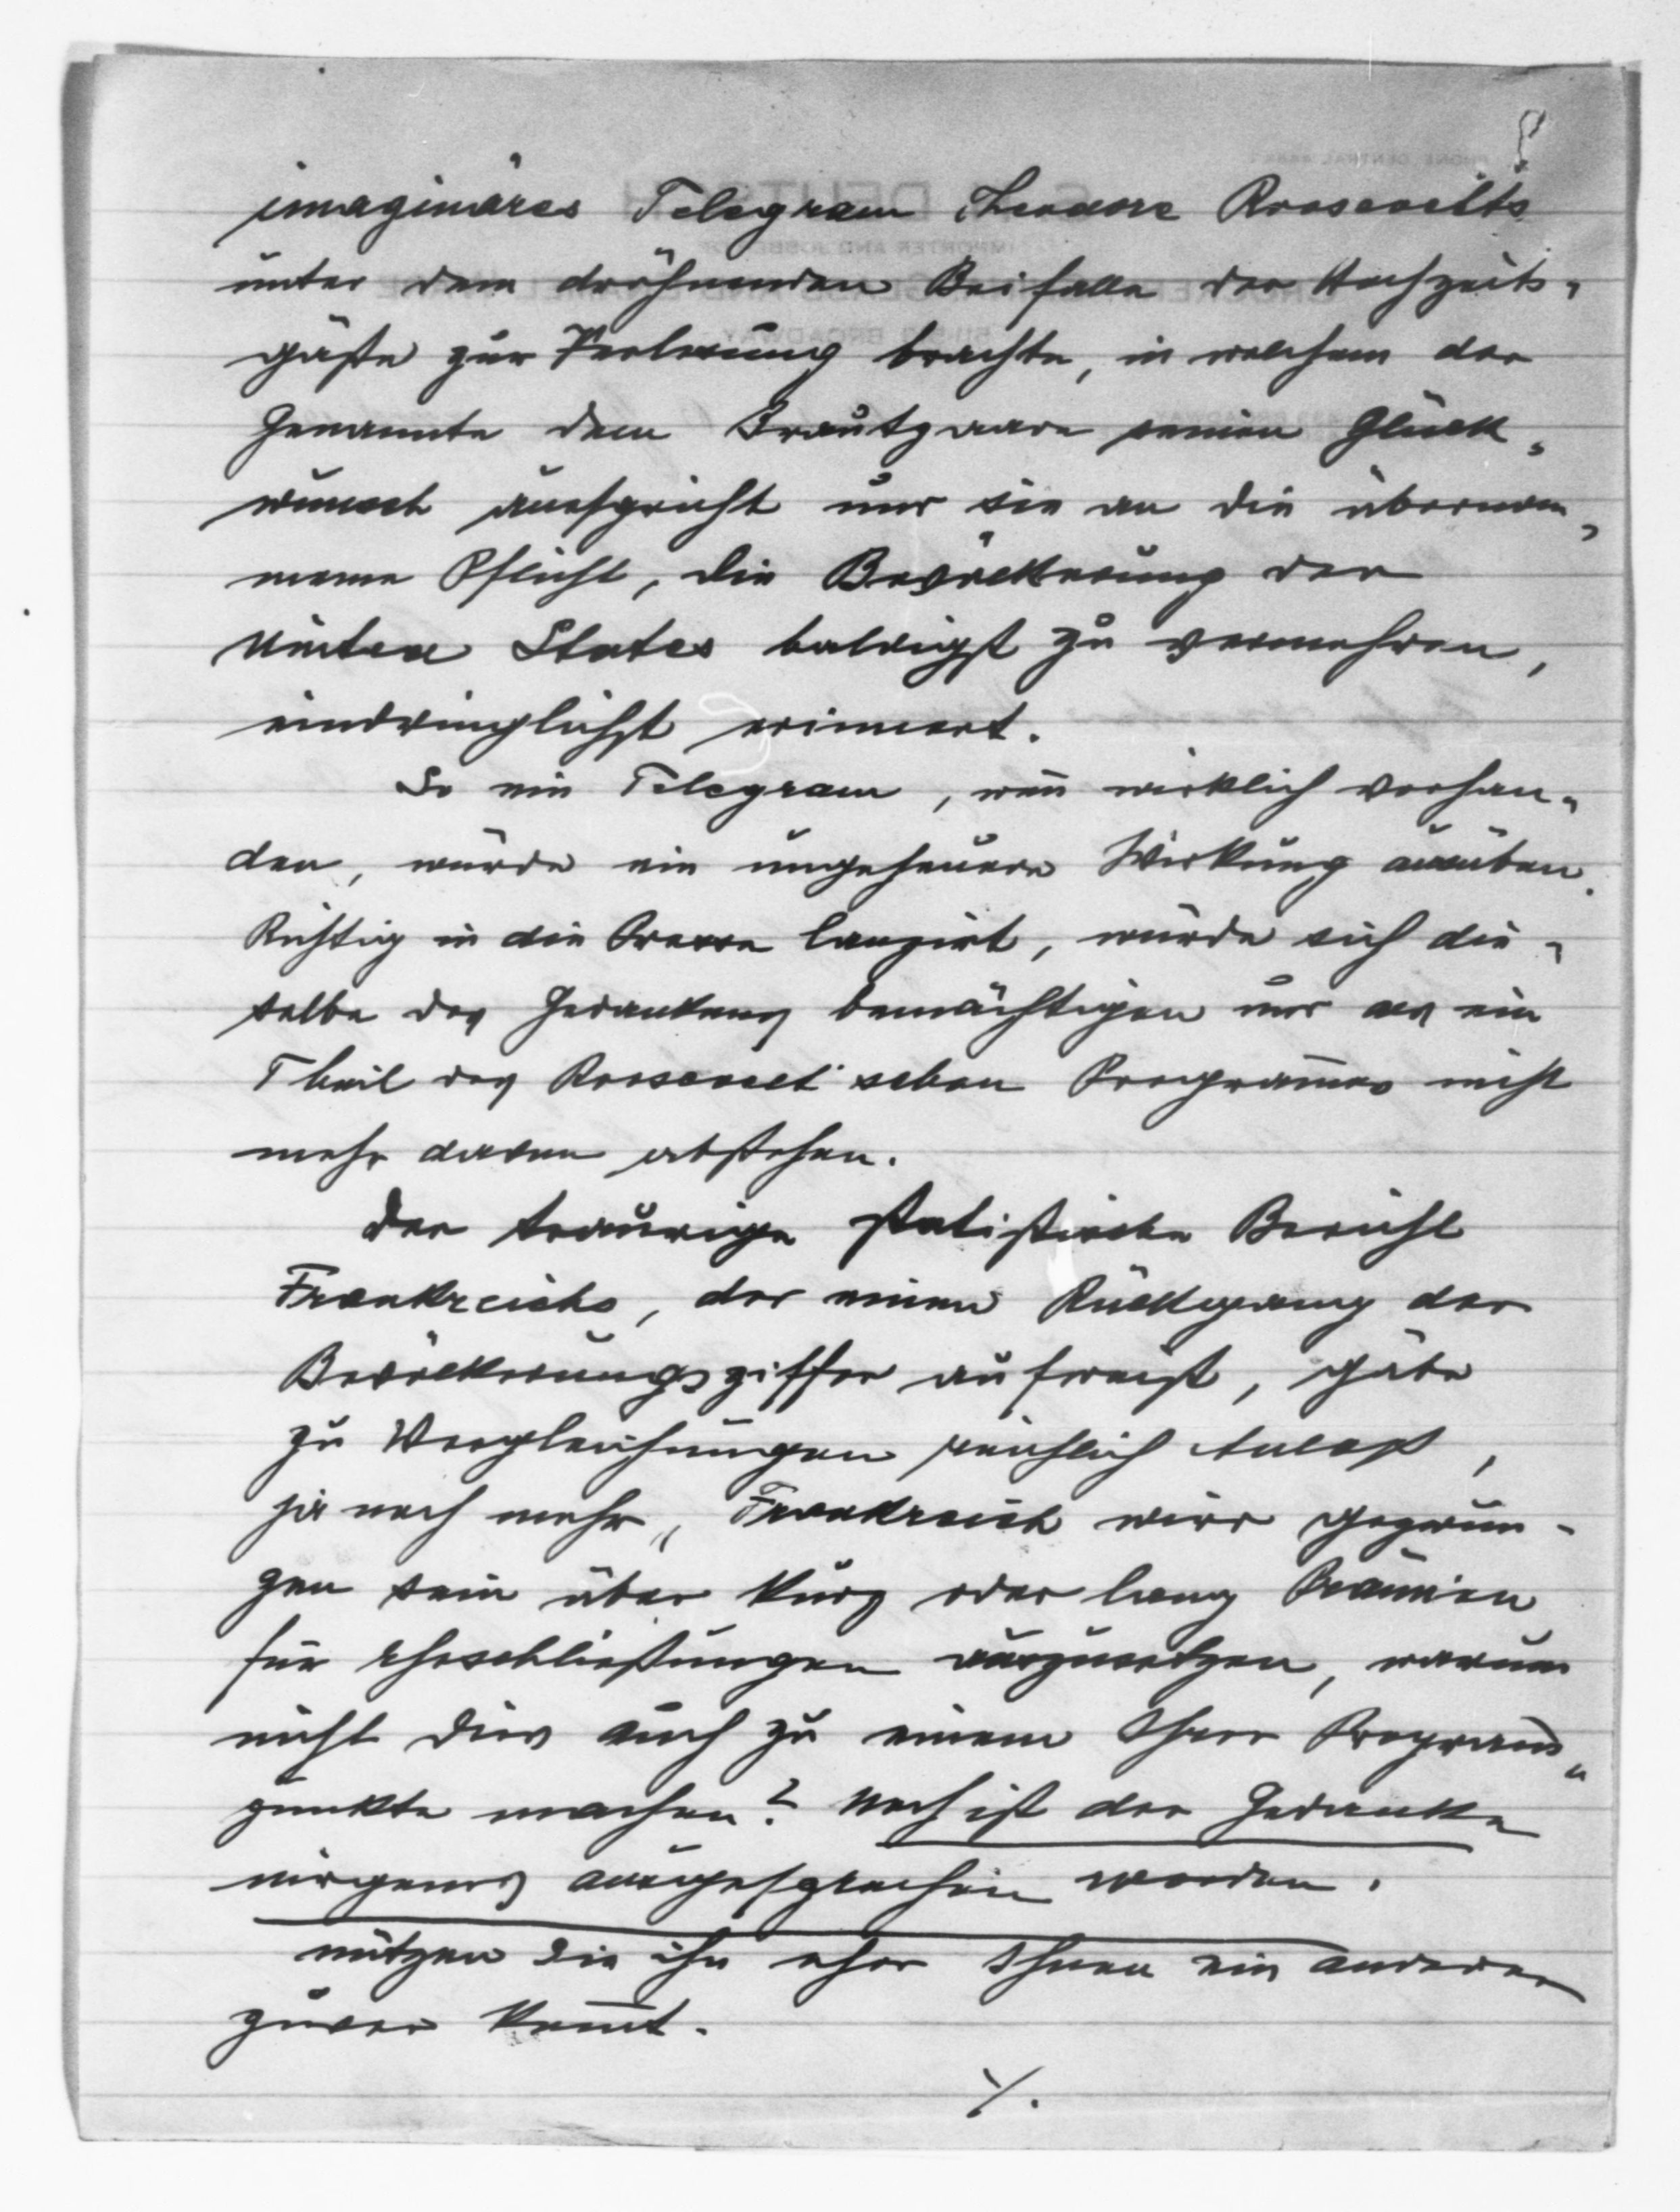 imaginäres Telegram Theodore Roosevelts
unter dem dröhnenden Beifalle der Hochzeits-
gäste zur Verlesung brachte, in welchem der
Genannte dem Brautpaare seinen Glück-
wunsch ausspricht und sie an die übernom-
mene Pflicht, die Bevölkerung der
United States baldigst zu vermehren,
eindringlichst erinnert.
So ein Telegram, weñ wirklich vorhan-
den, würde ein ungeheuere Wirkung ausüben.
Richtig in die Presse lanzirt, würde sich die-
selbe des Gedankens bemächtigen und als ein
Theil des Roosevelt'schen Programm̄es nicht
mehr davon abstehen.
Der traurige statistische Bericht
Frankreichs, der einen Rückgang der
Bevölkerungsziffer aufweist, gäbe
zu Vergleichungen reichlich Anlass,
ja noch mehr, Frankreich wird gezwun-
gen sein über kurz oder lang Prämien
für Eheschließungen auszusetzen, warum
nicht dies auch zu einem Ihrer Program̄-
punkte machen? Noch ist der Gedanke
nirgends ausgesprochen worden.
nützen Sie ihn eher Ihnen ein anderer
zuvor kom̄t.
./.